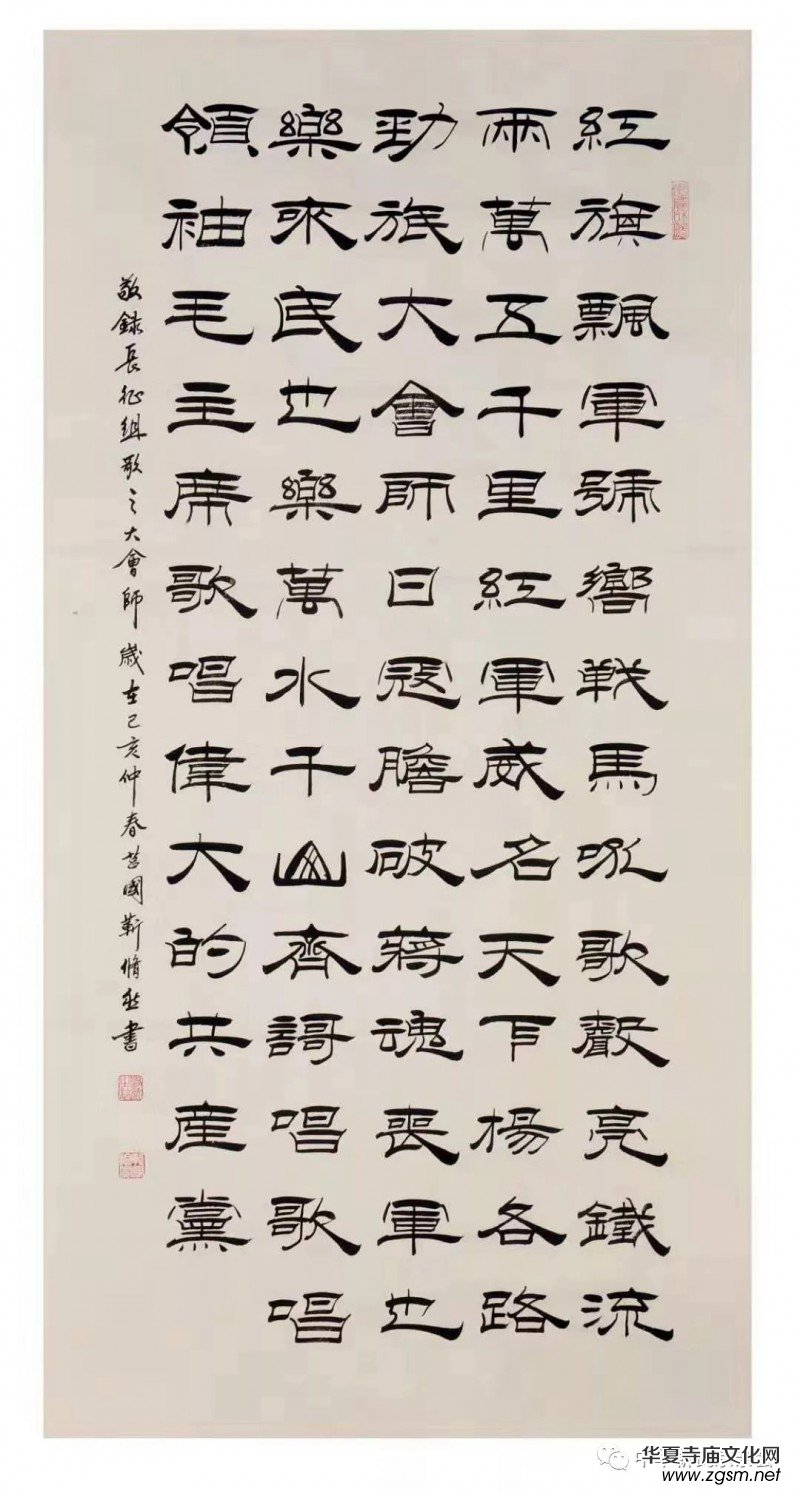 紅旗飄軍號響戰馬吼歌聲亮鐵流
兩萬五千里紅軍威名天下楊各路
勁旅大會師日寇膽破蔣魂喪軍也
樂來民也樂萬水千山齊謌唱歌唱
領袖毛主席歌唱偉大的共產黨
敬錄長征組歌之大會師 歲在己亥仲春莒國靳脩書
华夏寺庙文化网
www.zgsm.net